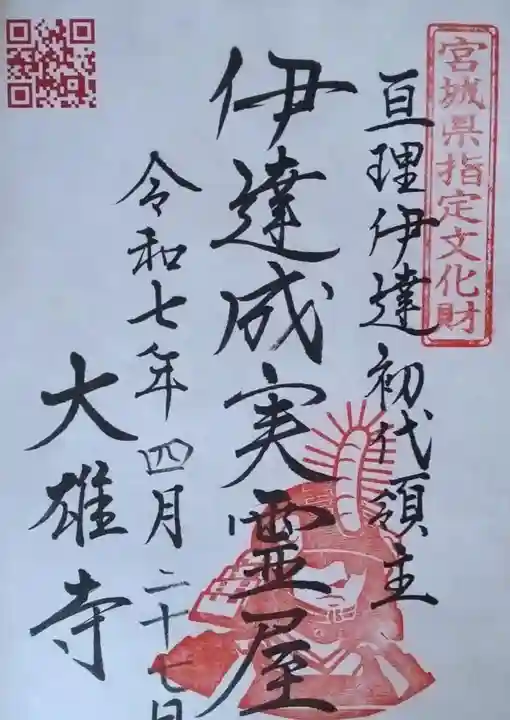 宮城県指定文化財
亘理伊達初代領主
伊達成実霊屋
令和七年四月二十七日
大雄寺